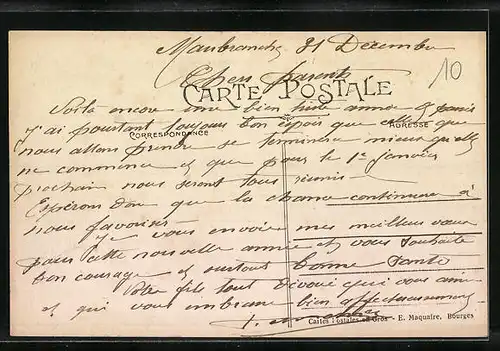 Maubranche 31 Decembre
10
Chers parents
CARTE POSTALE
Voila encore une bien triste année de passée
j'ai pourtant toujours bon espoir que celle que
CORRESPONDANCE
ADRESSE
nous allons prendre se terminera mieux qu'elle
ne commence et que pour le 1er Janvier
prochain nous seront tous réunis -
Espérons donc que la chance continuera à
nous favoriser
Je vous envoie mes meilleurs vœux
pour cette nouvelle année et vous souhaite
bon courage et surtout bonne santé
Votre fils tout dévoué qui vous aime
et qui vous embrasse bien affectueusement
Cartes Postales en Gros - E. Maquaire, Bourges